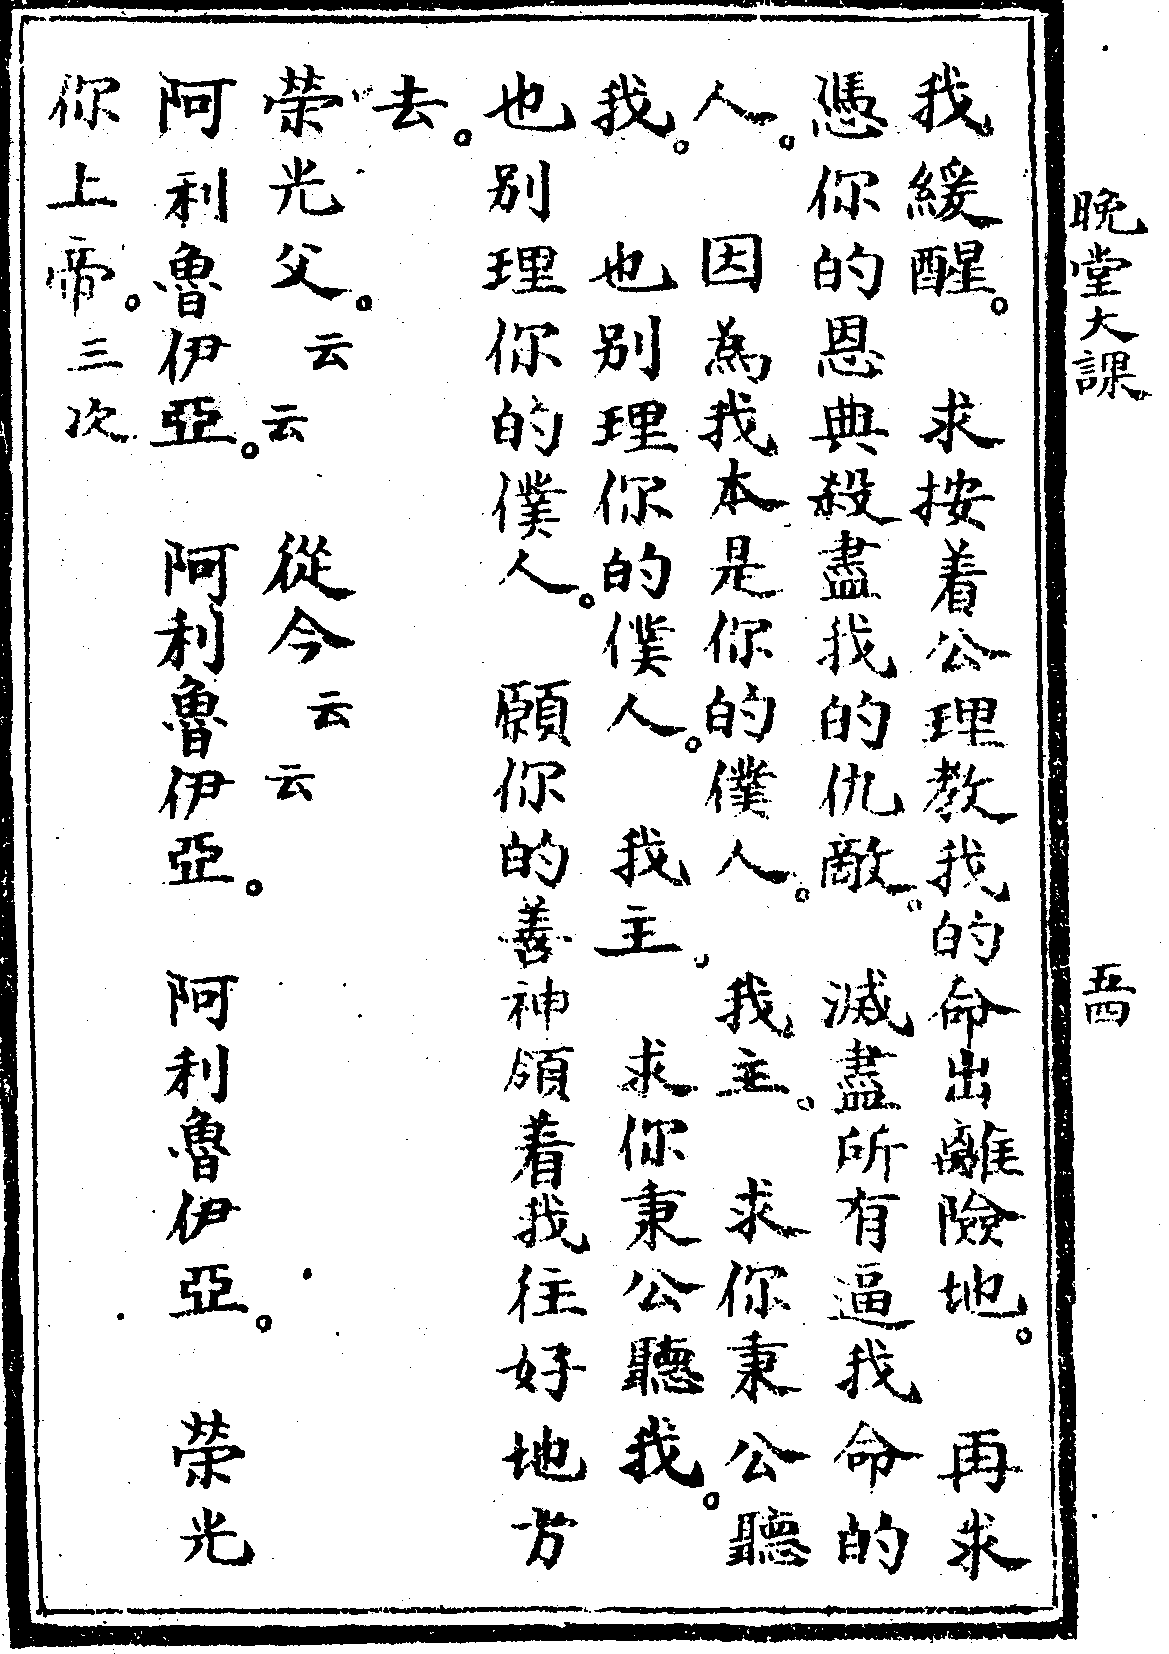 晚堂大課
五四
我緩醒。求按着公理教我的命出離險地。再求
憑你的恩典殺盡我的仇敵。滅盡所有逼我命的
人。因為我本是你的僕人。我主。求你秉公聽
我。也別理你的僕人。我主。求你秉公聽我。
也別理你的僕人。願你的善神頒着我往好地方
去。
榮光父。云云從今云云
阿利魯伊亞。阿利魯伊亞。阿利魯伊亞。榮光
你上帝。三次